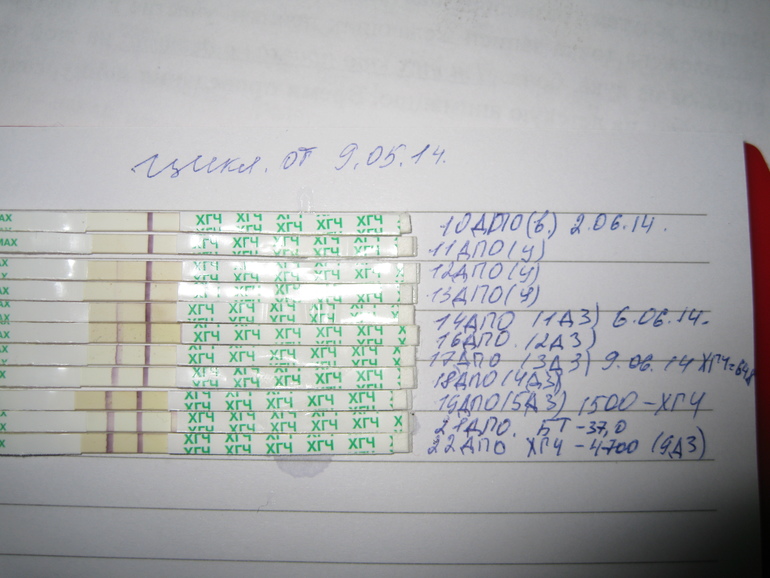 Цикл. от 9.05.14.
МАХ ХГЧ ХГЧ ХГЧ ХГЧ ХГЧ 10ДПО(в.) 2.06.14.
МАХ ХГЧ ХГЧ ХГЧ ХГЧ ХГЧ 11ДПО(у)
ХГЧ ХГЧ ХГЧ ХГЧ ХГЧ 12ДПО(у)
ХГЧ ХГЧ ХГЧ ХГЧ ХГЧ 13ДПО(у)
ХГЧ ХГЧ ХГЧ ХГЧ ХГЧ 14ДПО (1ДЗ) 6.06.14.
ХГЧ ХГЧ ХГЧ ХГЧ ХГЧ 16ДПО. (2ДЗ)
ХГЧ ХГЧ ХГЧ ХГЧ ХГЧ 17ДПО (3ДЗ) 9.06.14 ХГЧ=648
ХГЧ ХГЧ ХГЧ ХГЧ ХГЧ 18ДПО(4ДЗ)
ХГЧ ХГЧ ХГЧ ХГЧ ХГЧ 19ДПО(5ДЗ) 1500-ХГЧ
ХГЧ ХГЧ ХГЧ ХГЧ ХГЧ 21ДПО. БТ-37,0
ХГЧ ХГЧ ХГЧ ХГЧ ХГЧ 22ДПО ХГЧ-4700 (9ДЗ)